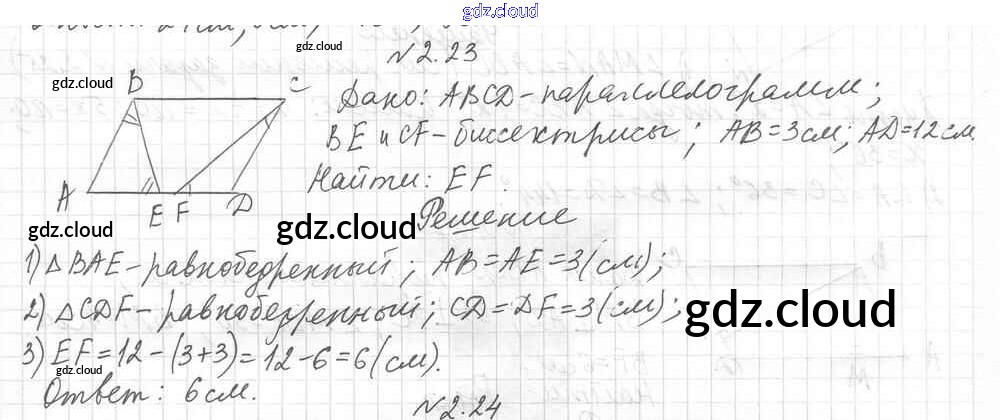 gdz.cloud
№2.23
gdz.cloud
gdz.cloud
B C
A E F D
Дано: ABCD - параллелограмм;
BE и CF - биссектрисы; AB = 3 см; AD = 12 см.
Найти: EF.
gdz.cloud
gdz.cloud
Решение
1) △BAE - равнобедренный; AB = AE = 3 (см);
2) △CDF - равнобедренный; CD = DF = 3 (см);
gdz.cloud
gdz.cloud
3) EF = 12 - (3+3) = 12 - 6 = 6 (см).
gdz.cloud
Ответ: 6 см.
№2.24